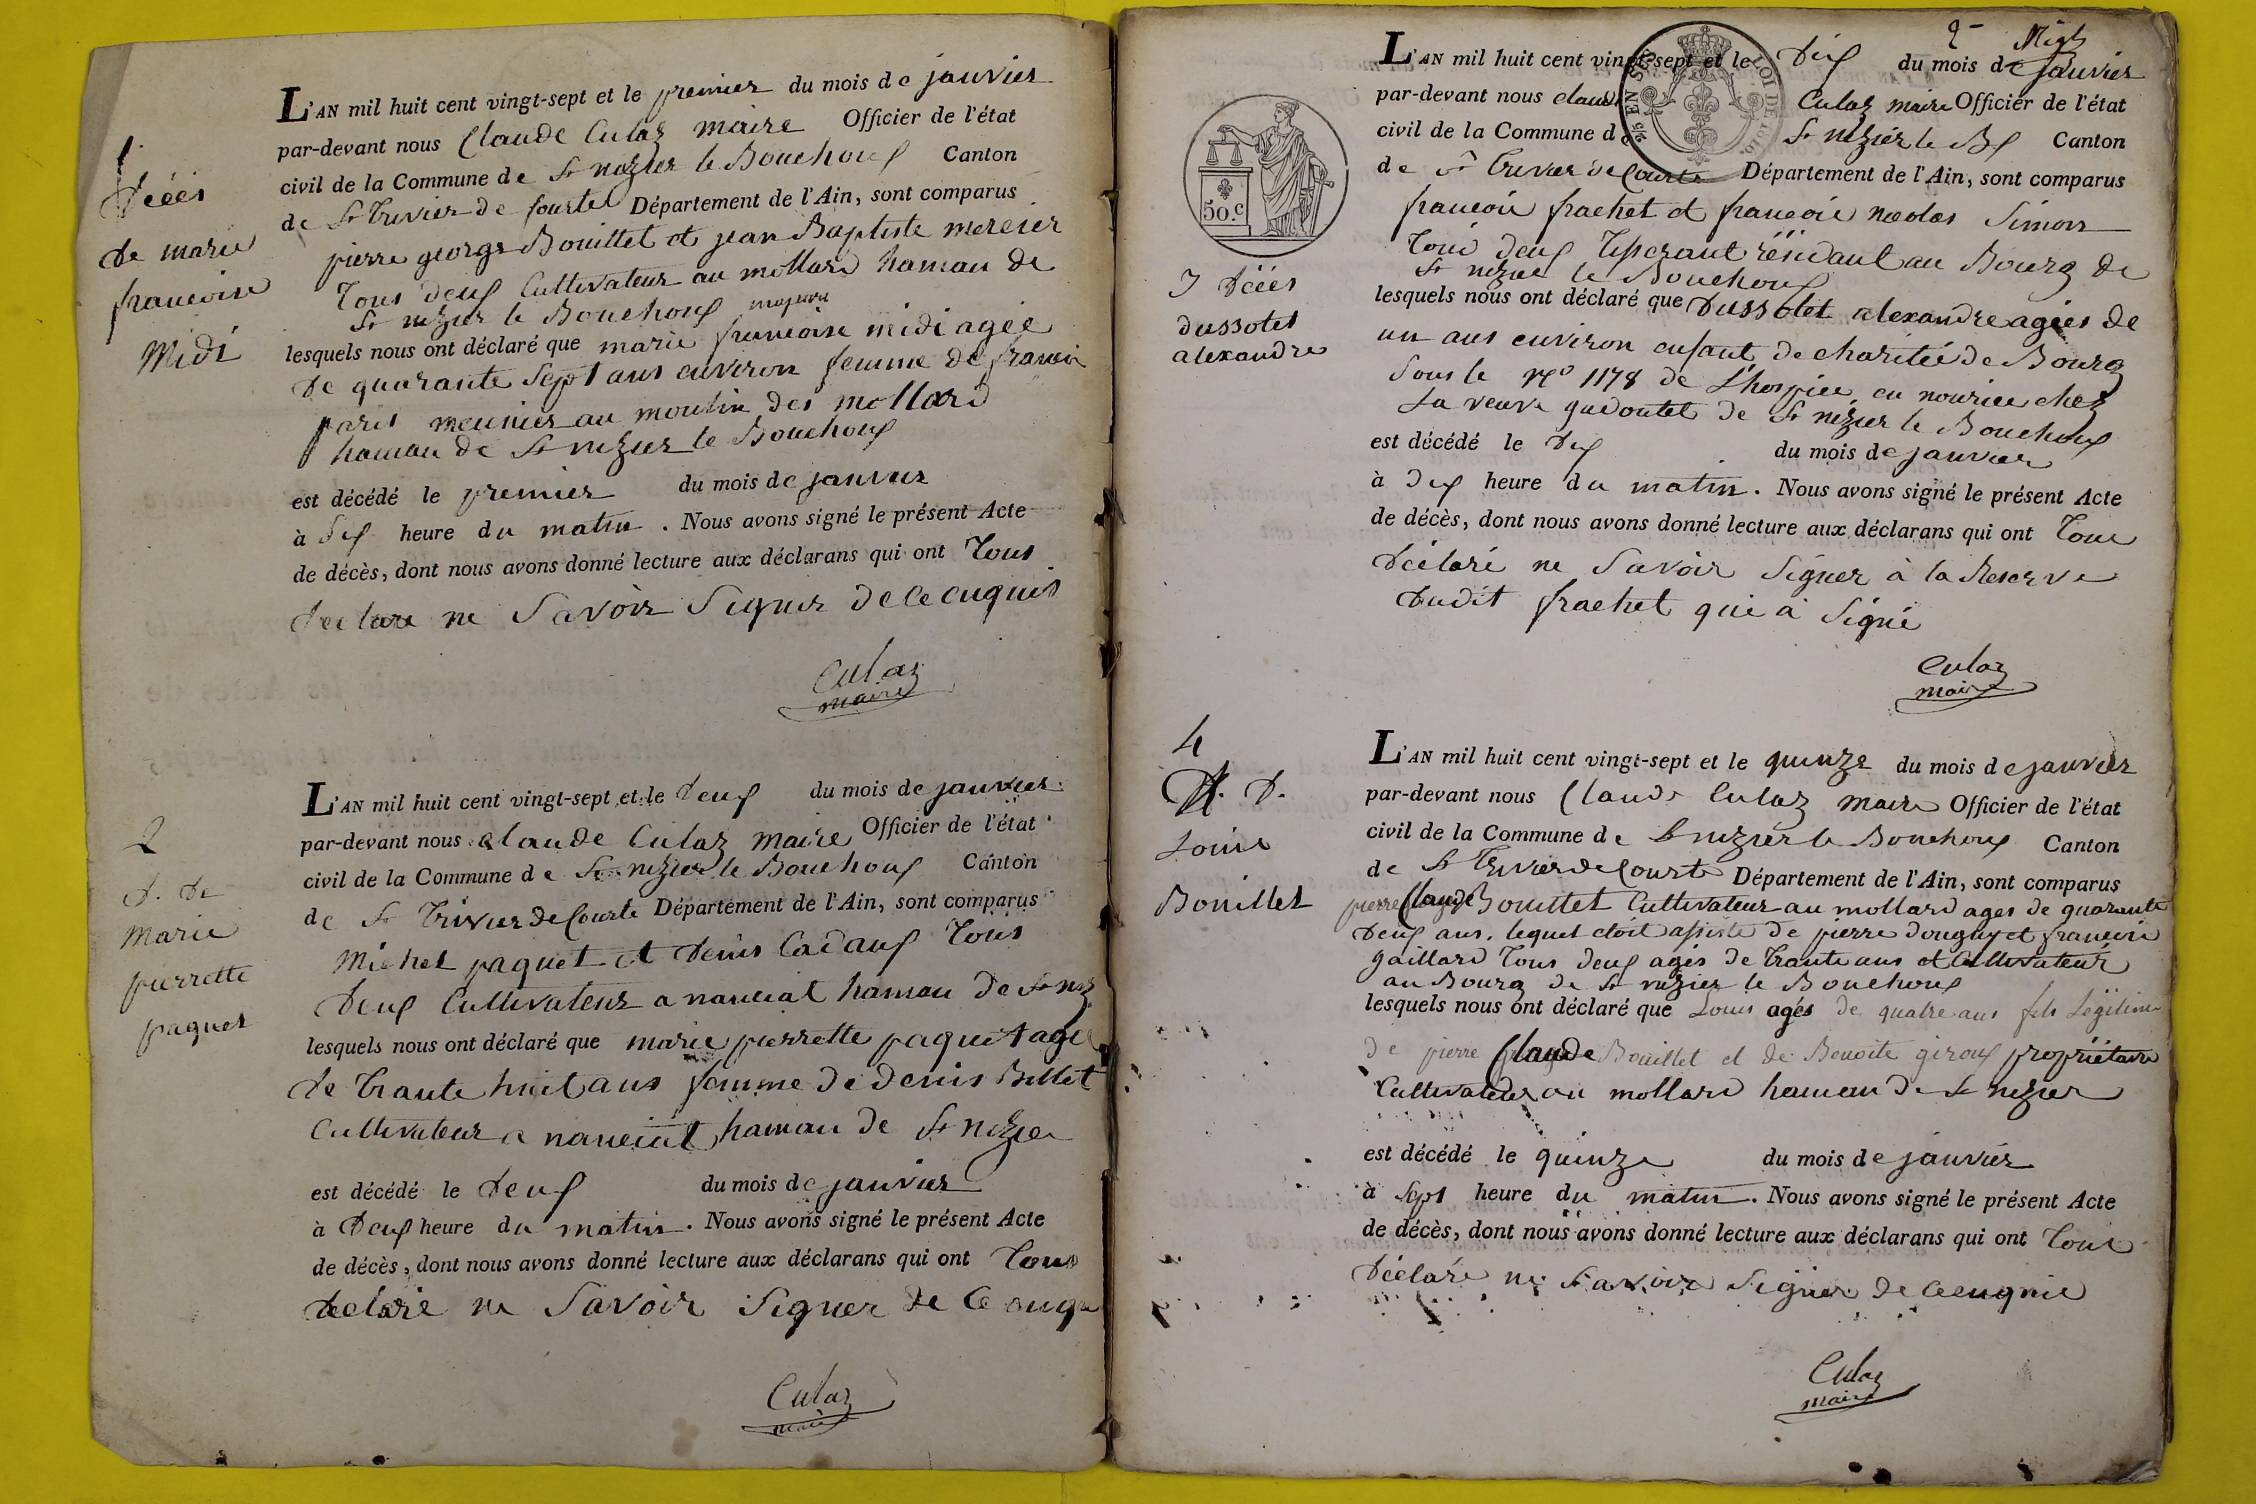 1.
Décés
de marie
francoise
Midi
L'AN mil huit cent vingt-sept et le premier du mois de janvier
par-devant nous Claude Culaz maire Officier de l'état
civil de la Commune de St nizier le Bouchoux Canton
de St trivier de Courte Département de l'Ain, sont comparus
pierre george Bouillet et jean Baptiste mercier
tous deux Cultivateur au mollard hamau de
St nizier le Bouchoux
lesquels nous ont déclaré que marie francoise midi agée
de quarante sept ans environ femme de francoi
paris meunier au moulin des mollard
hamau de St nizier le Bouchoux
est décédé le premier du mois de janvier
à dix heure du matin. Nous avons signé le présent Acte
de décès, dont nous avons donné lecture aux déclarans qui ont tous
declare ne Savoir Signer de ce enquis
Culaz
maire
2
d. de
Marie
pierrette
paquet
L'AN mil huit cent vingt-sept et le deux du mois de janvier
par-devant nous claude Culaz maire Officier de l'état
civil de la Commune de St nizier le Bouchoux Canton
de St trivier de Courte Département de l'Ain, sont comparus
Michel paquet et denis Cadaux tous
deux Cultivateur a nanciat hamau de St niz
lesquels nous ont déclaré que marie pierrette paquet age
de trante huit ans femme de denis Billet
Cultivateur a nanciat hamau de St nizier
est décédé le deux du mois de janvier
à deux heure du matin. Nous avons signé le présent Acte
de décès, dont nous avons donné lecture aux déclarans qui ont tous
declaré ne Savoir Signer de Ce enqu
Culaz
maire
2
EN SUS
LOI DE
50.c
3 Décés
dussotet
alexandre
L'AN mil huit cent vingt-sept et le dix du mois de janvier
par-devant nous claude Culaz maire Officier de l'état
civil de la Commune de St nizier le Bx Canton
de St trivier de Courte Département de l'Ain, sont comparus
francoie frachet et francoie nicolas Simon
tous deux tisserant résidant au Bourg de
St nizier le Bouchoux
lesquels nous ont déclaré que Dussotet alexandre agées de
un ans environ enfant de charitée de Bourg
Sous le no 1178 de L'hospice en nourice chez
La veuve gudoutet de St nizier le Bouchoux
est décédé le dix du mois de janvier
à dix heure du matin. Nous avons signé le présent Acte
de décès, dont nous avons donné lecture aux déclarans qui ont tous
déclaré ne Savoir Signer à la Reserve
dudit frachet qui à Signé
Culaz
maire
4
D.
Louis
Bouillet
L'AN mil huit cent vingt-sept et le quinze du mois de janvier
par-devant nous Claude Culaz maire Officier de l'état
civil de la Commune de St nizier le Bouchoux Canton
de St trivier de Courte Département de l'Ain, sont comparus
pierre Claude Bouillet Cultivateur au mollard ages de quarante
deux ans. lequel etoit assisté de pierre Donguy et francoie
gaillard tous deux agés de trante ans et Cultivateur
au Bourg de St nizier le Bouchoux
lesquels nous ont déclaré que Louis agés de quatre ans fils Légitime
de pierre Claude Bouillet et de Benoite giroux propriétaire
Cultivateur au mollard hamau de St nizier
est décédé le quinze du mois de janvier
à Sept heure du matin. Nous avons signé le présent Acte
de décès, dont nous avons donné lecture aux déclarans qui ont tous
déclaré ne Savoir Signer de ce enquie
Culaz
maire